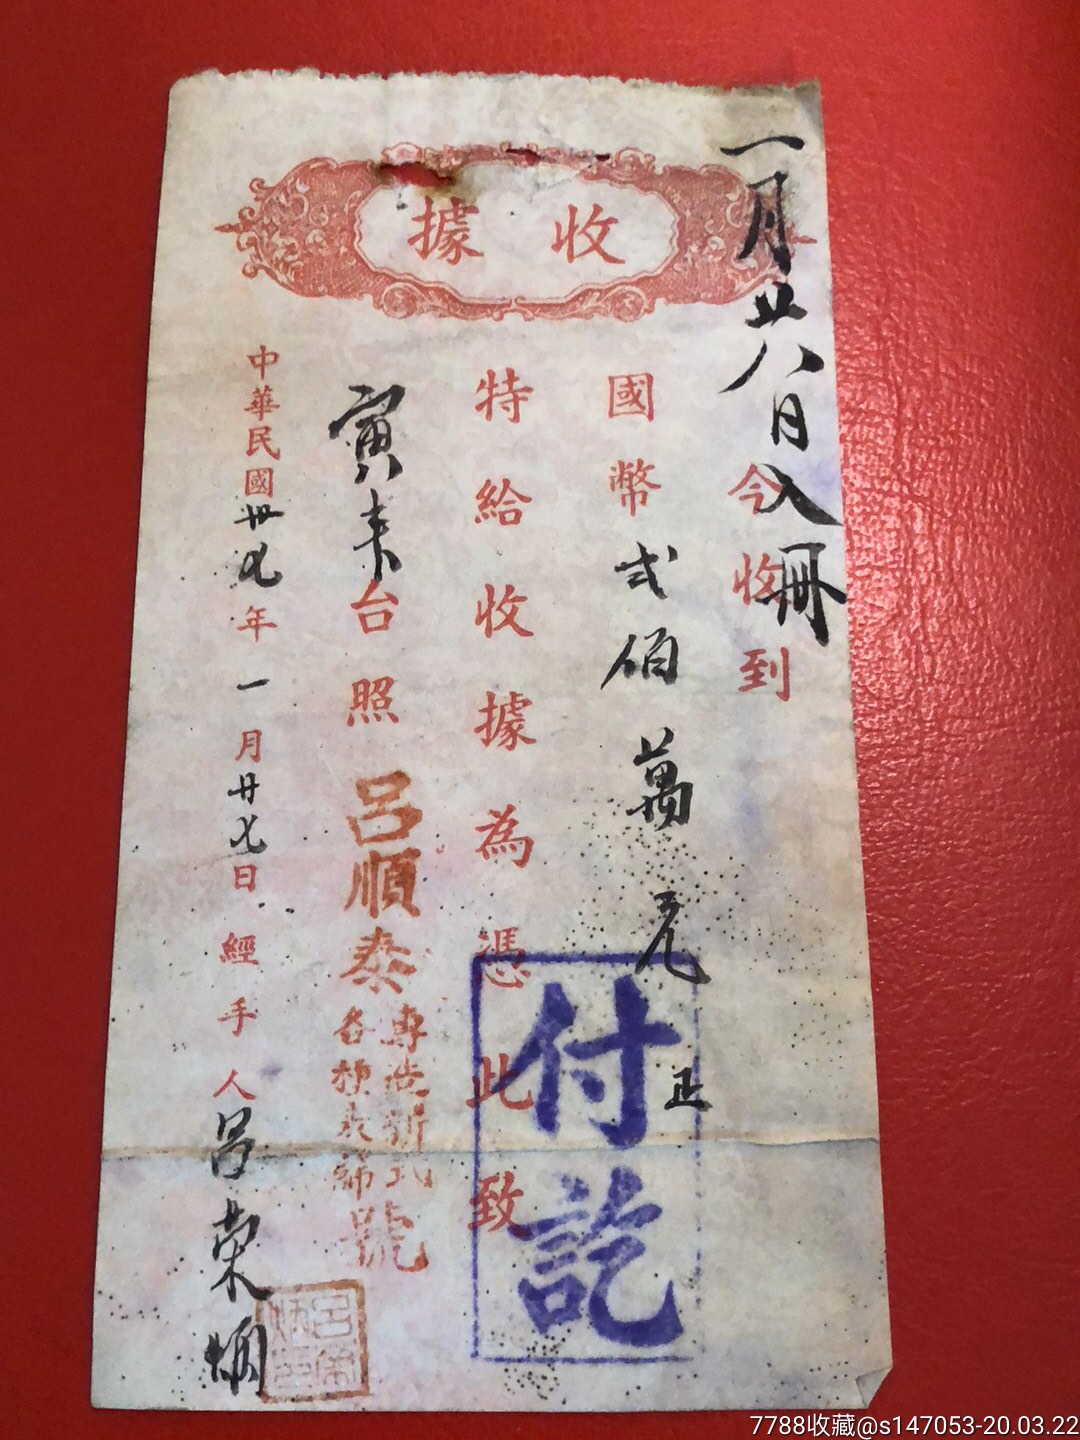 收據
一月廿八日入冊
今收到
國幣弍佰萬元正
特給收據為憑此致
寅來台照
呂順泰
專造新式
各種衣飾
號
中華民國卅七年一月廿七日經手人呂榮炳
付訖
7788收藏@s147053-20.03.22